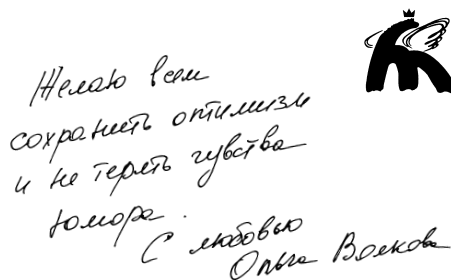 Желаю всем
сохранить оптимизм
и не терять чувства
юмора.
С любовью
Ольга Волкова